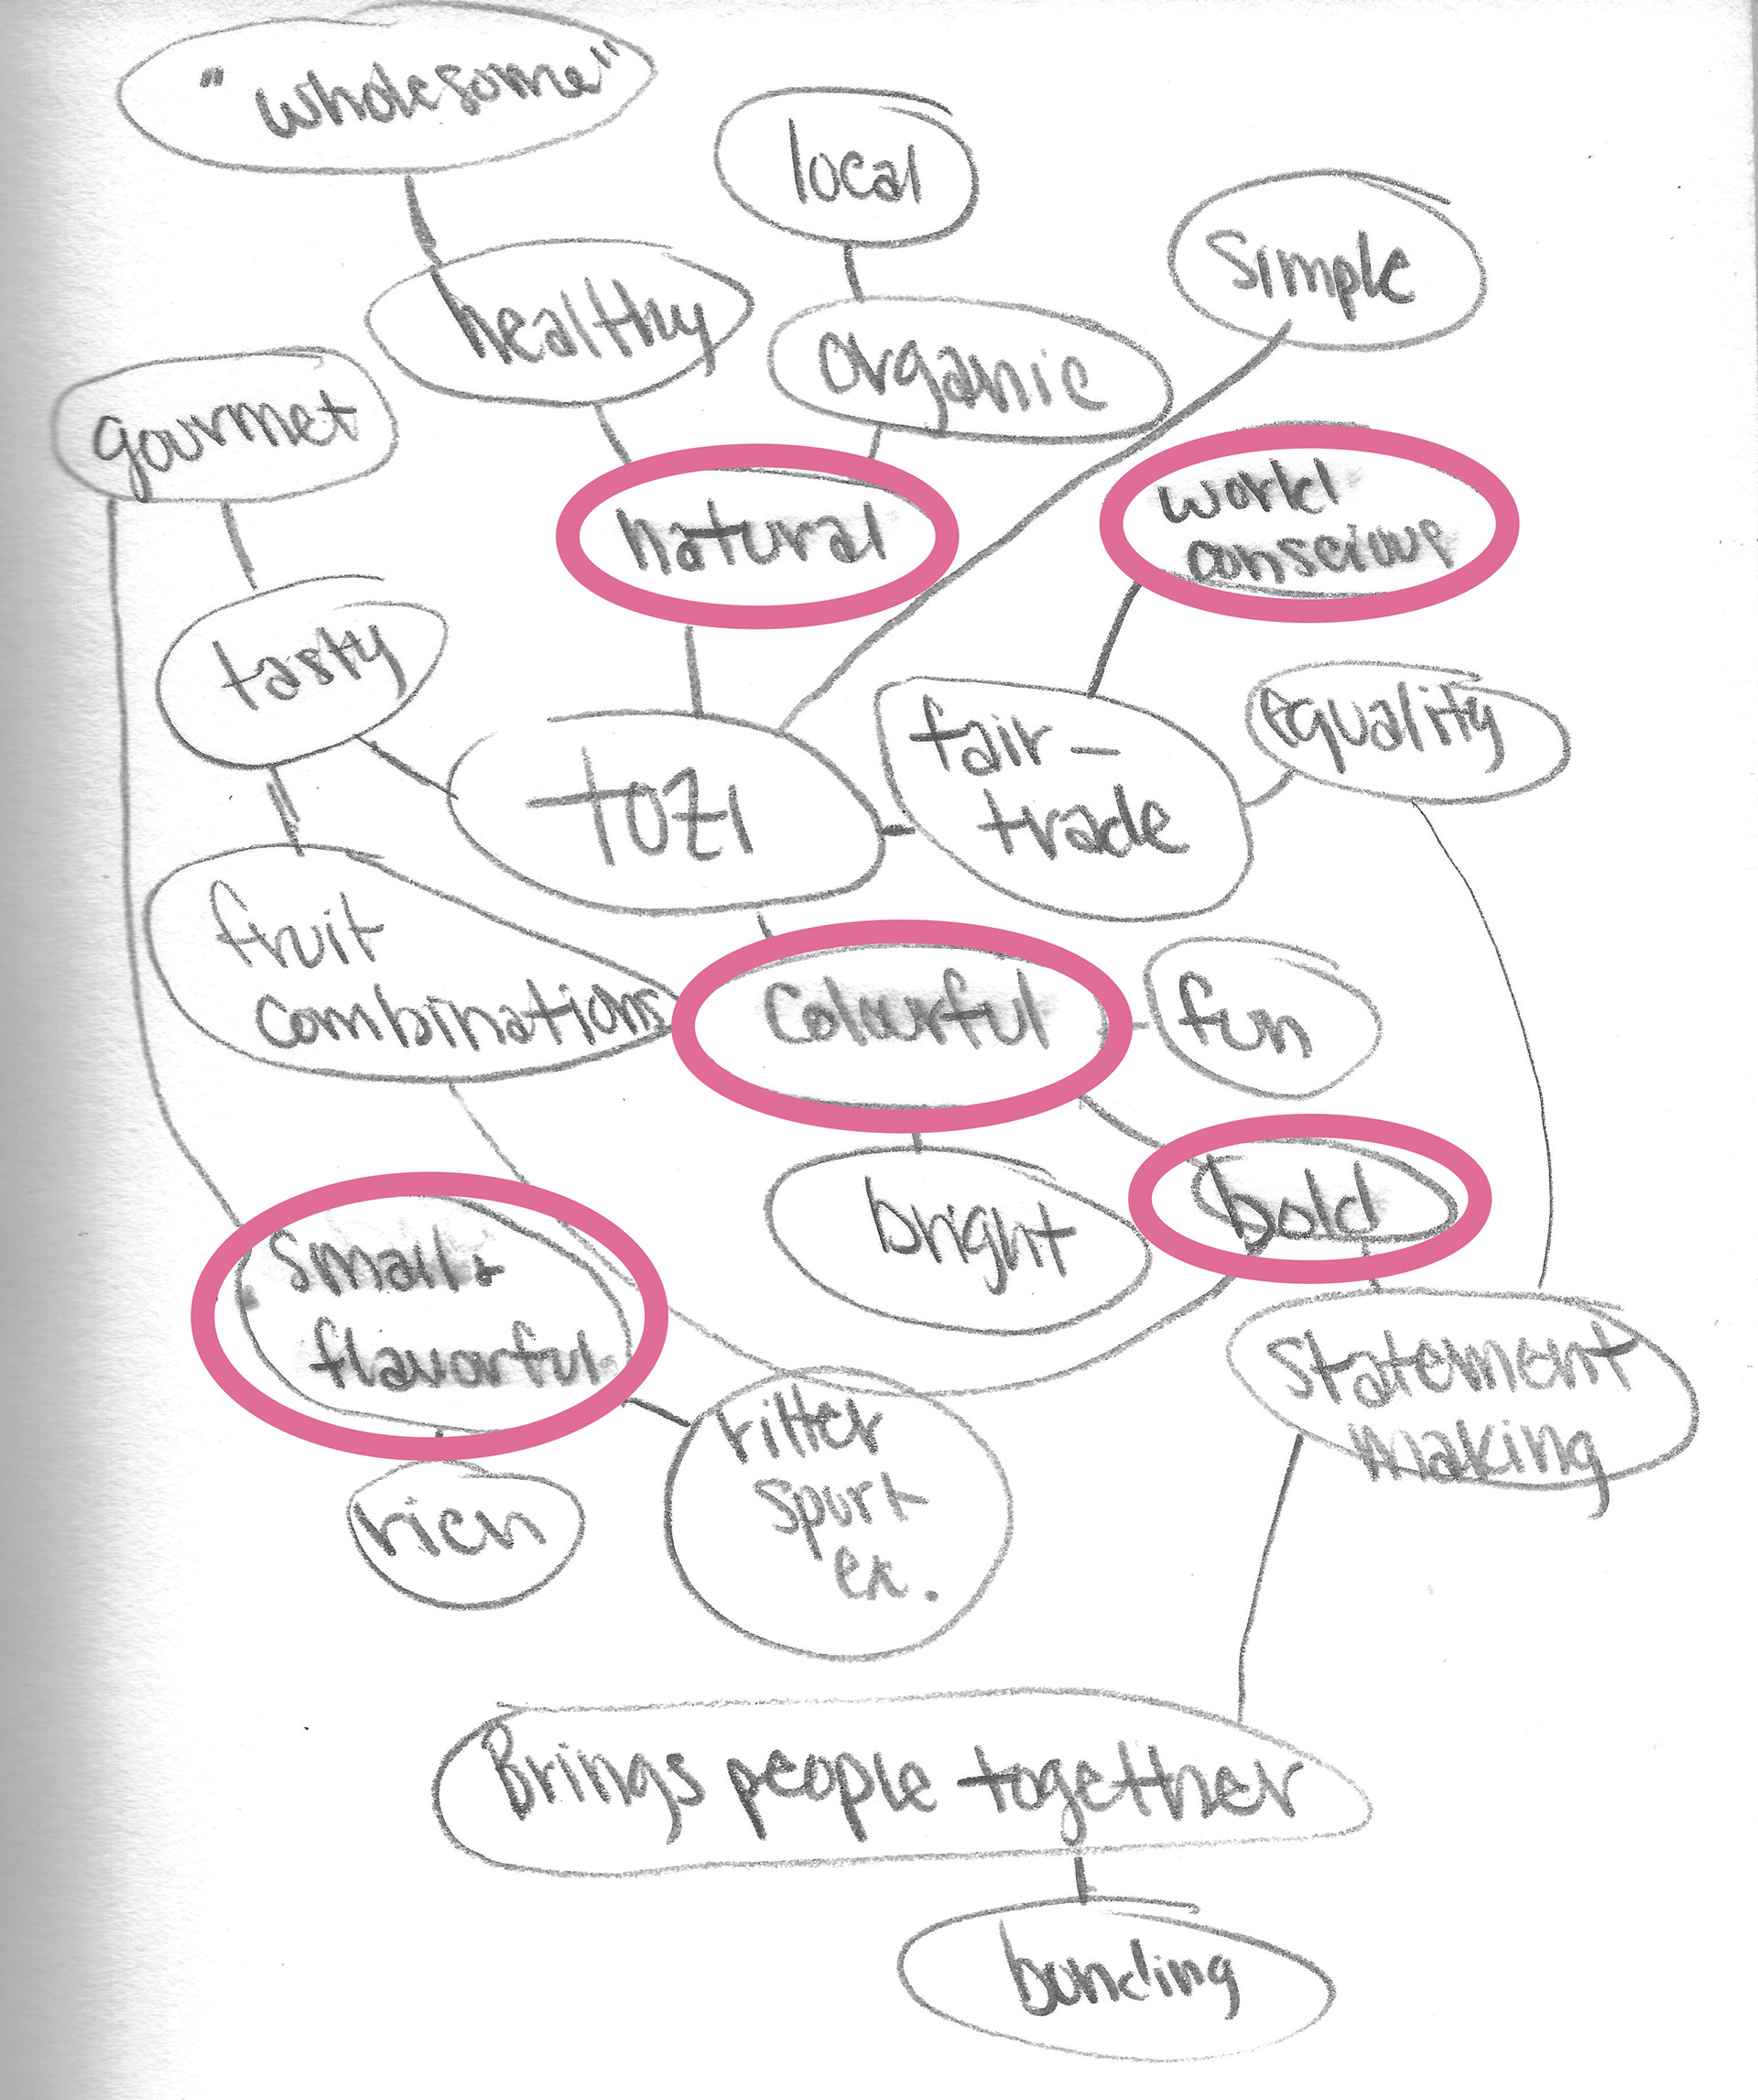 "wholesome"
local
simple
healthy
organic
gourmet
natural
world
conscious
tasty
fair-
trade
equality
tozi
fruit
combinations
Colourful
fun
bright
bold
small &
flavorful
statement
making
ritter
sport
ex.
rich
Brings people together
bonding